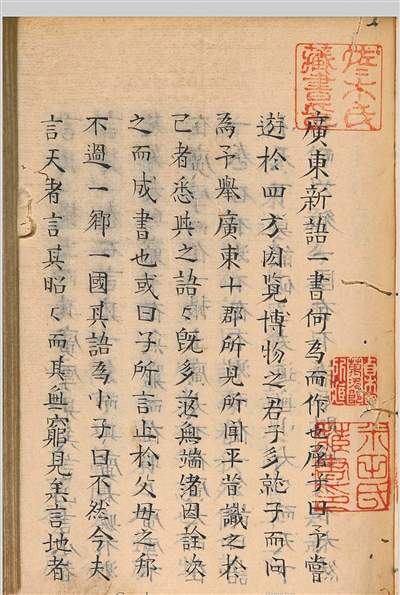 廣東新語一書何為而作也屈子曰予嘗
遊於四方閎覽博物之君子多就予而問
焉予舉廣東十郡所見所聞平昔識之於
己者悉與之語〻既多茫無端緒因詮次
之而成書也或曰子所言止於父母之邦
不過一鄉一國其語為小予曰不然今夫
言天者言其昭〻而其無窮見矣言地者